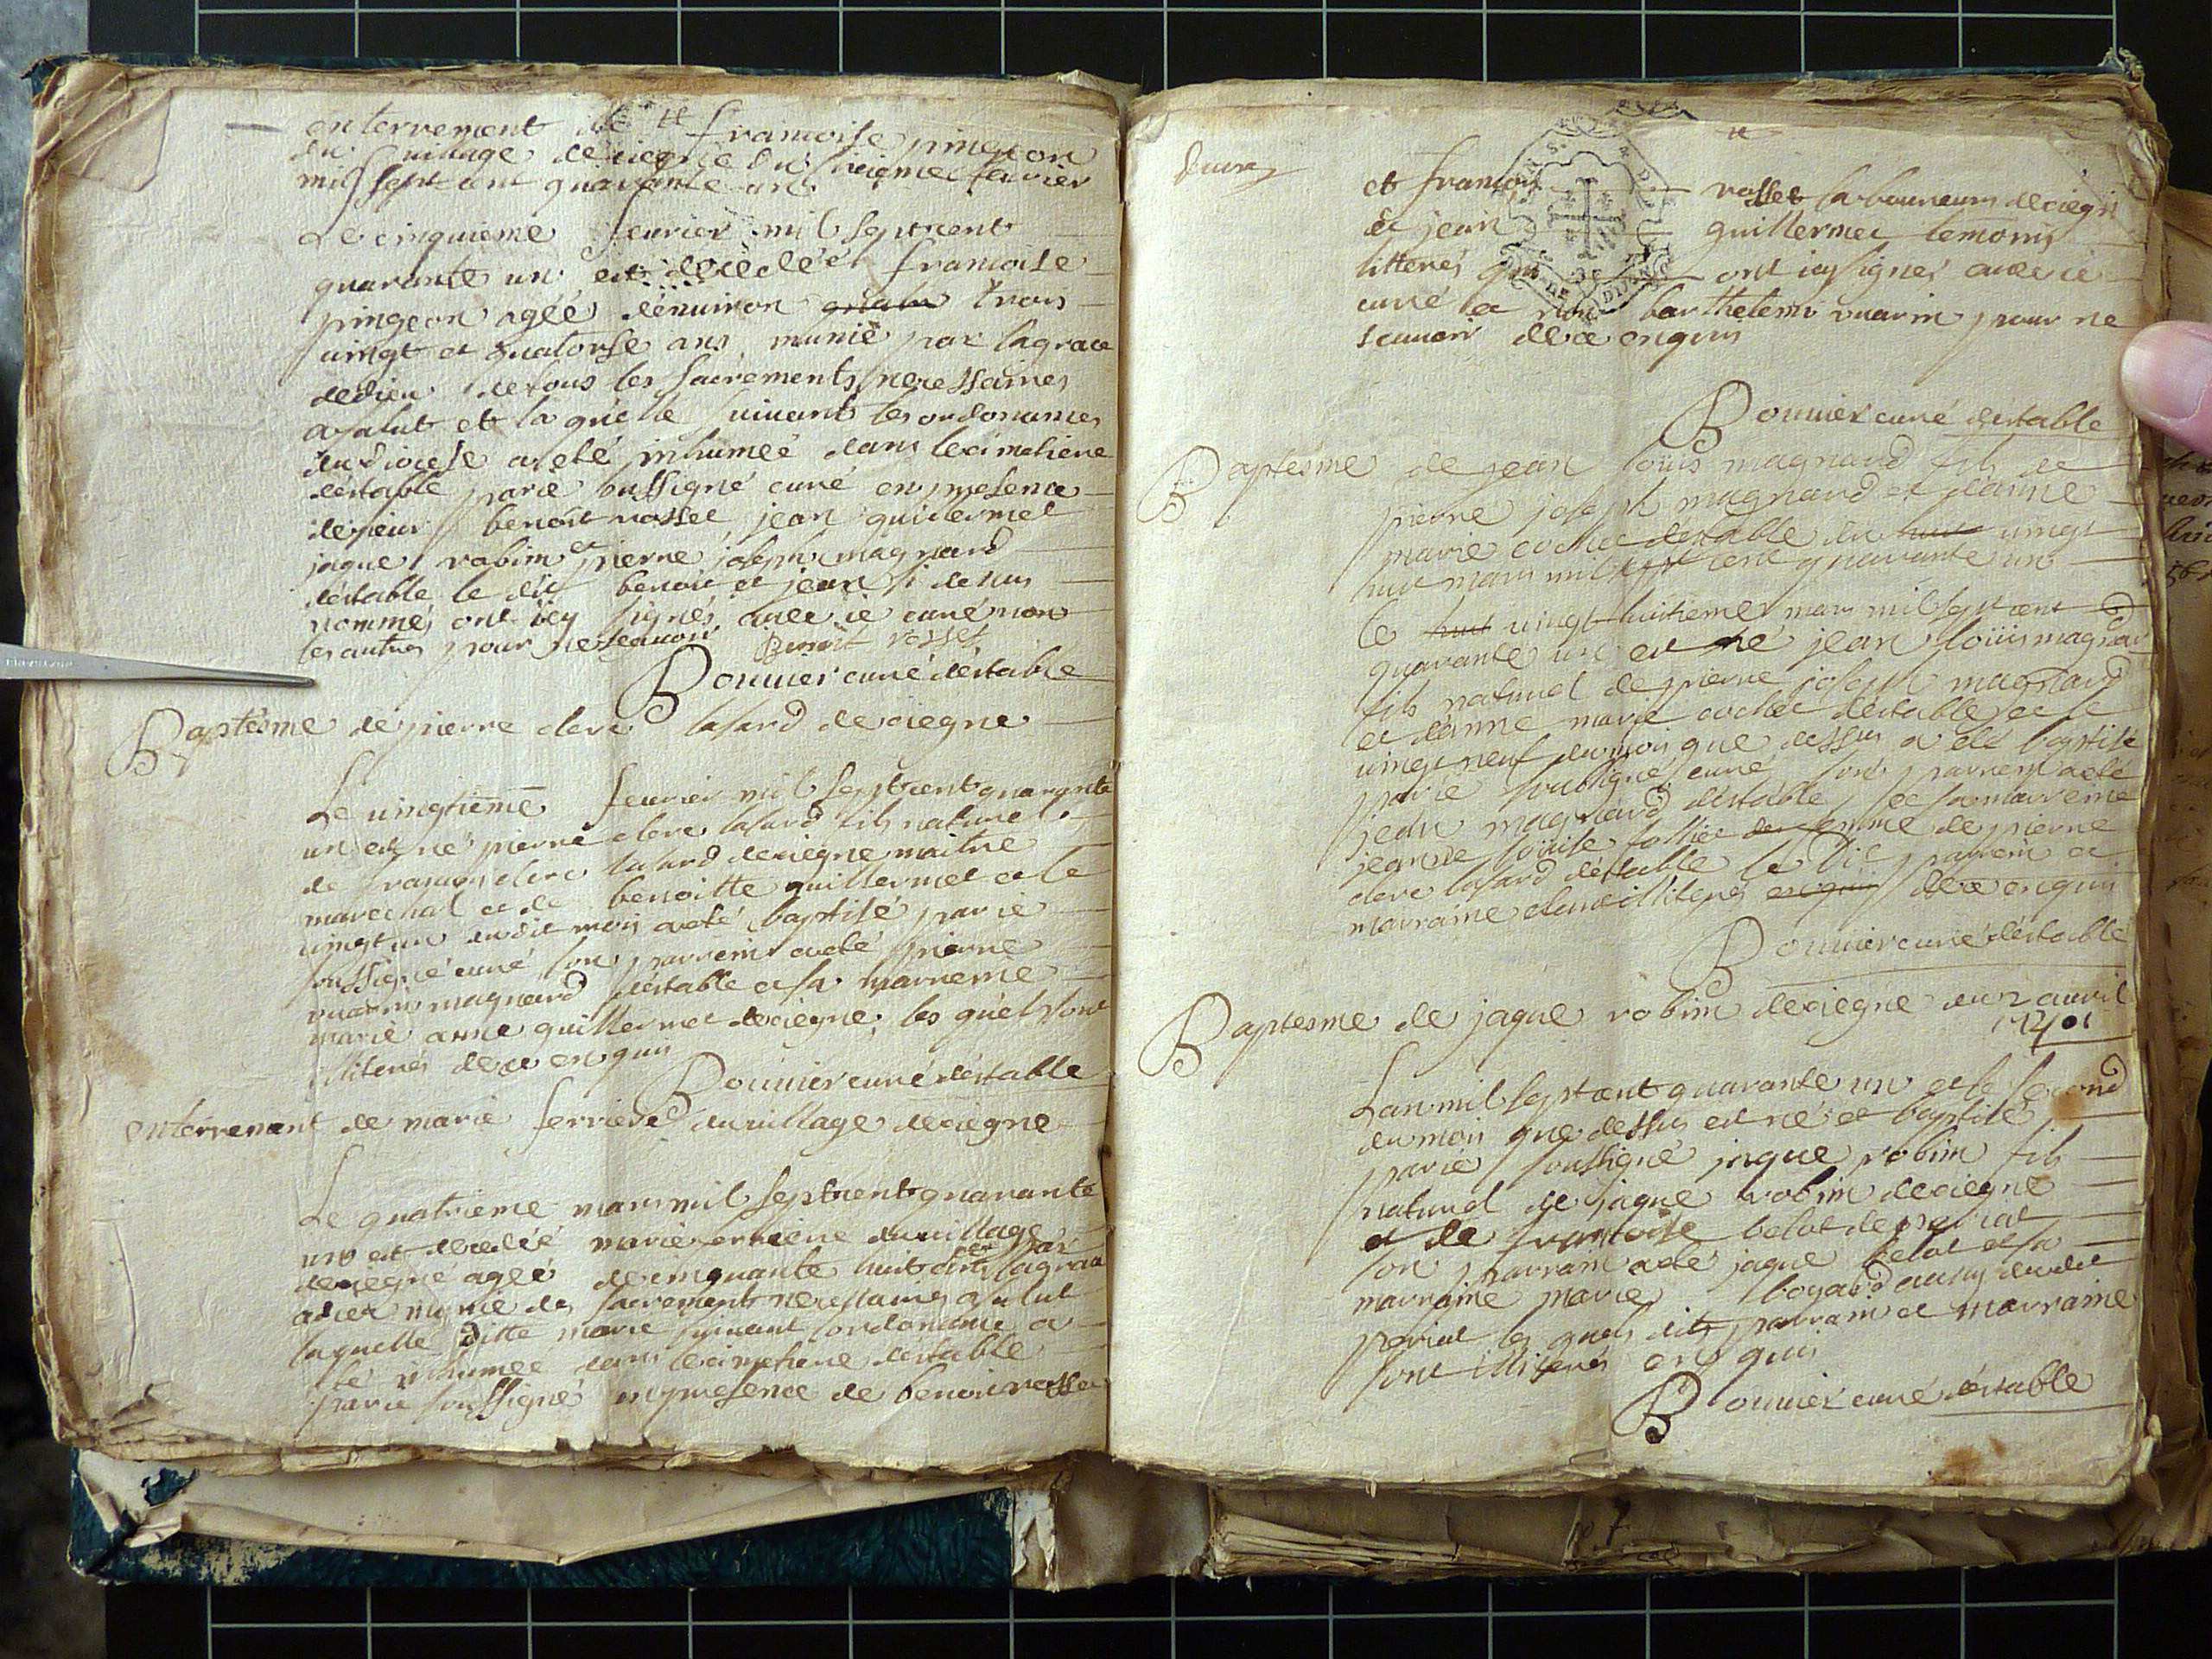 enterrement de francoise pingeon
du village de ciegne du sixieme feurier
mil sept cent quarante un
Le cinquieme feurier mil septcent
quarante un est decedéé francoise
pingeon agéé denuiron trois
uingt et quatorse ans munie par lagrace
dedieu detous les sacrements necessaires
asalut et la quelle suiuant les ordonances
du diocese aeté inhumeé dans lecimetiere
déstable parie soussigné curé en presence
desieur benoit rosset jean guillermet
jaque robin et pierre joseph magnard
déstable le dit benoit et jean si desus
nommés ont icy signés auec ie curé non
les autres pour nesçauoir Benoit rosset
Bouuier curé déstable
Baptesme de pierre clerc lasard de ciegne
Le uingtieme feurier mil septcent quarante
un est né pierre clerc lasard fils naturel
de francois clerc lasard deciegne maitre
marechal et de benoitte guillermet et le
uingt un dudit mois aeté baptisé parie
soussigné curé son parrein aeté pierre
magnard déstable et sa marreine
marie anne guillermet deciegne, les quels sont
illiterés de ce enquis
Bouuier curé déstable
enterrement de marie ferriere du uillage deciegne
Le quatrieme mars mil septcent quarante
un est decedéé marie ferriere duuillage
deciegne ageé decinquante huit ans par lagrace
adieu munie des sacrements necessaires asalut
laquelle ditte marie suiuant lordonance a
été inhumée dans lecimetiere déstable
parie soussigné en presence de benoit rosset
et francois rosset laboureurs deciegne
et jean guillermet temoins
litterés qui ont icy signés auec ie
curé et non barthelemi uuarin pour ne
scauoir de ce enquis
Bouuier curé déstable
Baptesme de jean loüis magnard fils de
pierre joseph magnard et danne
marie cochet déstable du huit uingt
huit mars mil sept cent quarante un
Le huit uingt huitieme mars mil septcent
quarante un est né jean loüis magnard
fils naturel de pierre joseph magnard
et danne marie cochet déstable et le
uingt neuf du mois que dessus a eté baptisé
parie soussigné curé son parrein aeté
jean magnard déstable et sa marreine
jeanne loüise femme de pierre
clerc lasard déstable le dit parrein et
marraine illiterés enquis de ce enquis
Bouuier curé déstable
Baptesme de jaque robin deciegne du 2 auril
1741
Lan mil septcent quarante un et le second
du mois que dessus est né et baptisé
parie soussigné jaque robin fils
naturel de jaque robin deciegne
et de francoise belot de periat
son parrain aeté jaque belot et sa
marraine marie boyard aussy dudit
periat les quels dits parrain et marraine
sont illiterés enquis
Bouuier curé déstable